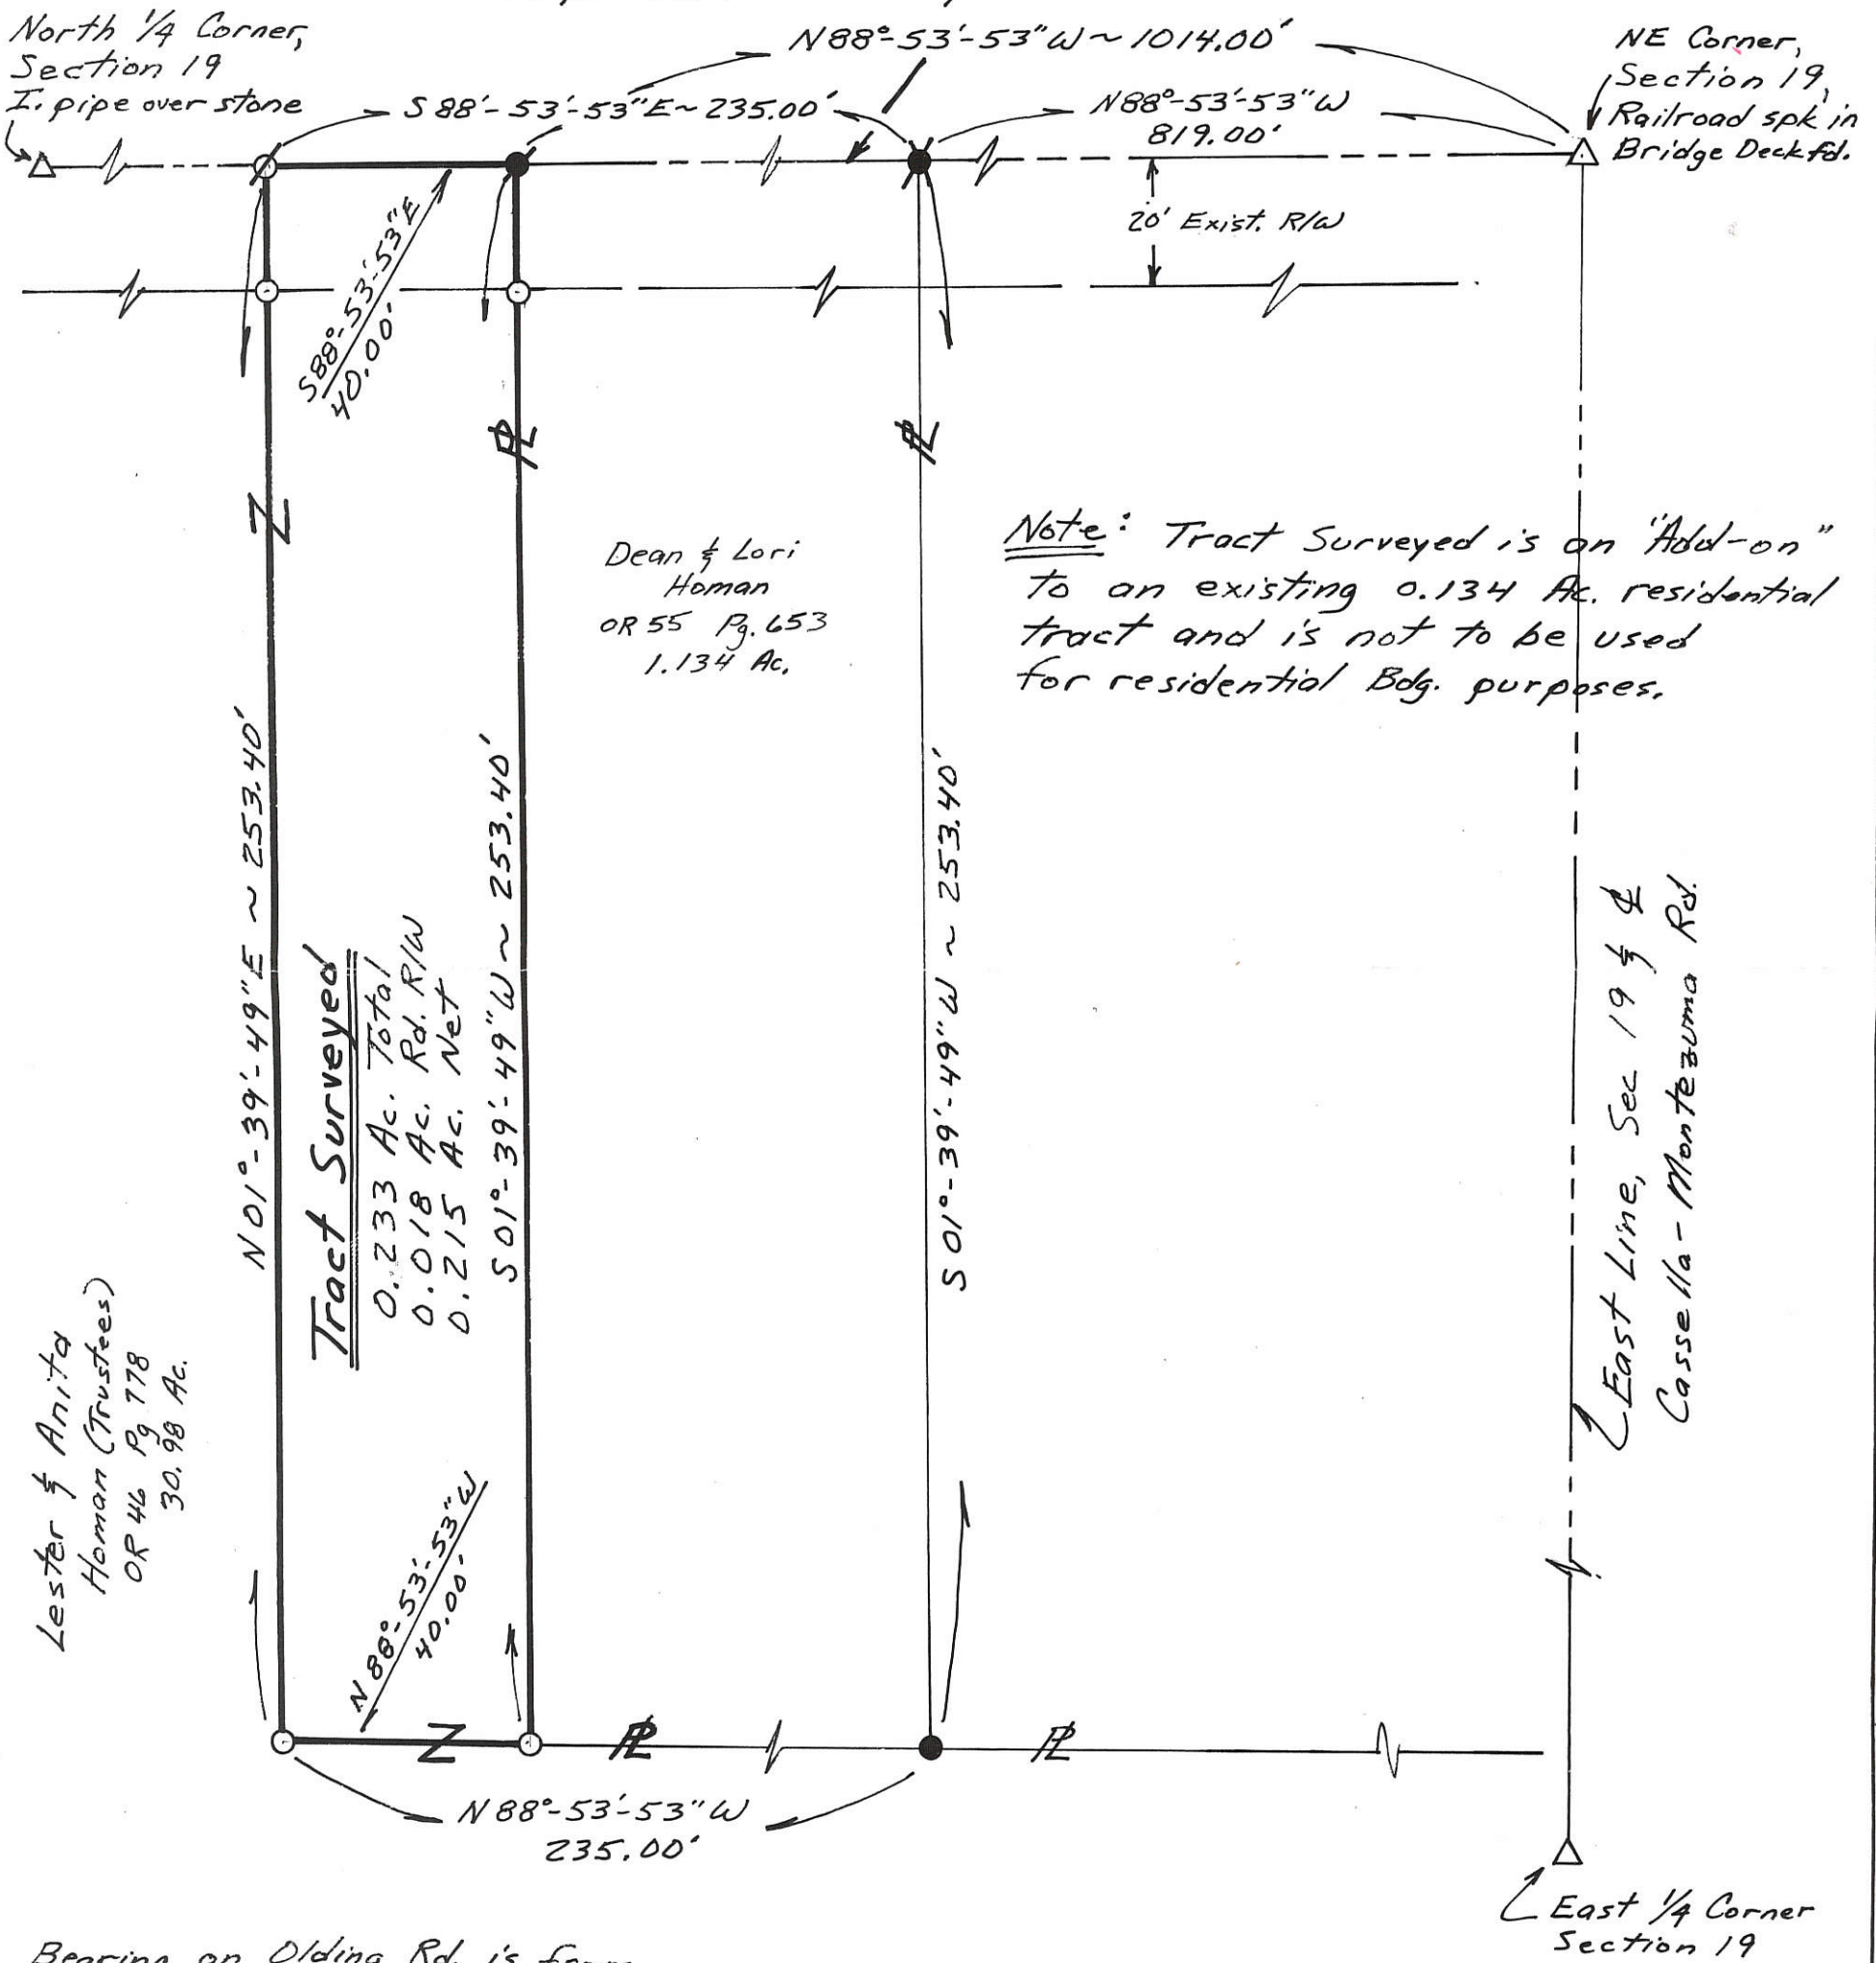 North 1/4 Corner,
Section 19
I. pipe over stone
N88°-53'-53"W ~ 1014.00'
NE Corner,
Section 19,
Railroad spk in
Bridge Deck fd.
S 88'-53'-53"E ~ 235.00'
N88°-53'-53"W
819.00'
20' Exist. R/W
S88°-53'-53"E
40.00'
PL
PL
Dean & Lori
Homan
OR 55 Pg. 653
1.134 Ac.
Note: Tract Surveyed is an "Add-on"
to an existing 0.134 Ac. residential
tract and is not to be used
for residential Bdg. purposes.
N 01°-39'-49"E ~ 253.40'
Tract Surveyed
0.233 Ac. Total
0.018 Ac. Rd. R/W
0.215 Ac. Net
S 01°-39'-49"W ~ 253.40'
S 01°-39'-49"W ~ 253.40'
East Line, Sec 19 & CL
Cassella-Montezuma Rd.
Lester & Anita
Homan (Trustees)
OR 46 Pg 778
30.98 Ac.
N 88°-53'-53"W
40.00'
PL
PL
N 88°-53'-53"W
235.00'
East 1/4 Corner
Section 19
Bearing on Olding Rd. is from